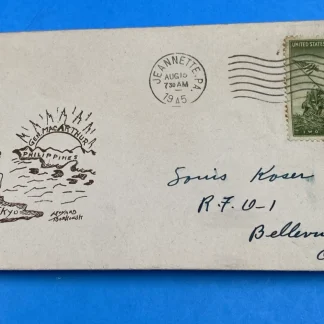 JEANNETTE, PA.
AUG 10
7 30 AM
1945
UNITED STATES
GEN MACARTHUR
PHILIPPINES
KYO
Louis Koser
R.F.D-1
Bellevu